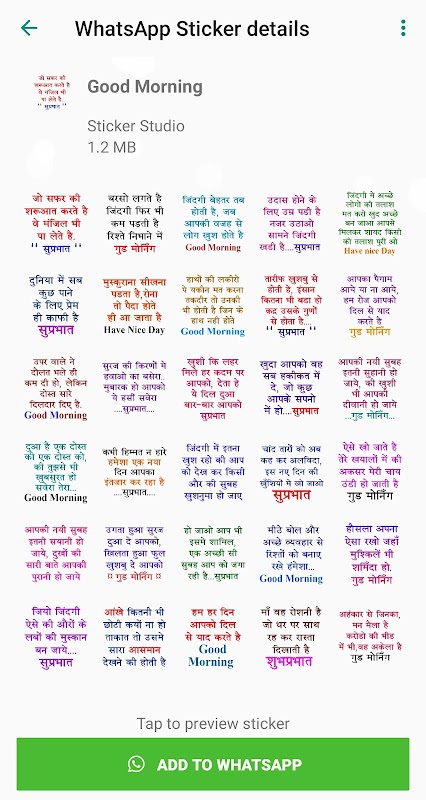 WhatsApp Sticker details
जो सफर की
शरूआत करते है
वे मंजिल भी
पा लेते है.
'' सुप्रभात ''
Good Morning
Sticker Studio
1.2 MB
जो सफर की
शरूआत करते है
वे मंजिल भी
पा लेते है.
'' सुप्रभात ''
बरसो लगते है
जिंदगी फिर भी
कम पडती है
रिश्ते निभाने में
गुड मोर्निंग
जिंदगी बेहतर तब
होती है, जब
आपकी वजह से
लोग खुश होते है
Good Morning
उदास होने के
लिए उम्र पडी है
नजर उठाओ
सामने जिंदगी
खडी है....सुप्रभात
जिंदगी मे अच्छे
लोगो की तलाश
मत करो खुद अच्छे
बन जाओ आपसे
मिलकर शायद किसी
की तलाश पूरी ओ
Have nice Day
दुनिया में सब
कुछ पाने
के लिए प्रेम
ही काफी है
सुप्रभात
मुस्कुराना सीखना
पडता है,रोना
तो पैदा होते
ही आ जाता है
Have Nice Day
हाथो की लकीरो
पे यकीन मत करना
तकदीर तो उनकी
भी होती है जिन के
हाथ नही होते
Good Morning
तारीफ खुशबु से
होती है, इसान
कितना भी बडा हो
कद्र उसके गुणों
से होता है...
'' सुप्रभात ''
आपका पैगाम
आये या ना आये,
हम रोज आपको
दिल से याद
करते है
गुड मोर्निंग
उपर वाले ने
दौलत भले ही
कम दी हो, लेकिन
दोस्त सारे
दिलदार दिए है.
Good Morning
सुरज की किरणों मे
हवाओ का बसेरा..
मुबारक हो आपको
ये हसीं सवेरा
....सुप्रभात....
खुशी कि लहर
मिले हर कदम पर
आपको, देता हे
ये दिल दुआ
बार-बार आपको
सुप्रभात
खुदा आपको वह
सब हकीकत में
दे, जो कुछ
आपके सपनो
में हो....सुप्रभात
आपकी नयी सुबह
इतनी सुहानी हो
जाये, की खुशी
भी आपकी
दीवानी हो जाये
...गुड मोर्निंग...
दुआ है एक दोस्त
की एक दोस्त को,
की तुझसे भी
खुबसुरत हो
सवेरा तेरा...
Good Morning
कभी हिम्मत न हारे
हमेशा एक नया
दिन आपका
इंतजार कर रहा है
....सुप्रभात....
जिंदगी में इतना
खुश रहो की आप
को देख कर किसी
और की सुबह
खुशनुमा हो जाए
चांद तारों को अब
कह कर अलविदा,
इस नए दिन की
खुशियों में खो जाओ
सुप्रभात
ऐसे खो जाते है
तेरे खयालों में की
अकसर मेरी चाय
ठंडी हो जाती है
गुड मोर्निंग
आपकी नयी सुबह
इतनी सयानी हो
जाये, दुखों की
सारी बाते आपकी
पुरानी हो जाये
उगता हुआ सुरज
दुआ दे आपको,
खिलता हुआ फुल
खुशबु दे आपको
¤ गुड मोर्निंग ¤
हो जाओ आप भी
इसमे शामिल,
एक अच्छी सी
सुबह आप को जगा
रही है...सुप्रभात
मीठे बोल और
अच्छे व्यवहार से
रिश्तों को बनाए
रखे हंमेशा...
Good Morning
हौसला अपना
ऐसा रखो जहाँ
मुश्किलें भी
शर्मिंदा हो.
गुड मोर्निंग
जियो जिंदगी
ऐसे की औरों के
लबों की मुस्कान
बन जाये....
सुप्रभात
आंखे कितनी भी
छोटी क्यों ना हो
ताकात तो उसमे
सारा आसमान
देखने की होती है
हम हर दिन
आपको दिल
से याद करते है
Good
Morning
माँ वह रोशनी है
जो धर पर साथ
रह कर रास्ता
दिखाती है
शुभप्रभात
अहंकार से जिनका,
मन मैला है
करोडो की भीड
में भी,वह अकेला है
गुड मोर्निंग
Tap to preview sticker
ADD TO WHATSAPP